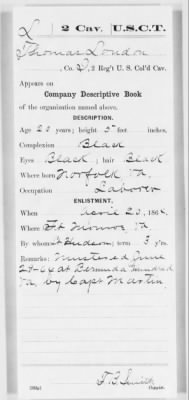 L 2 Cav. U.S.C.T.
Thomas London
, Co. D, 2 Reg't U. S. Col'd Cav.
Appears on
Company Descriptive Book
of the organization named above.
DESCRIPTION.
Age 20 years; height 5 feet inches.
Complexion Black
Eyes Black; hair Black
Where born Norfolk Va.
Occupation Laborer
ENLISTMENT.
When 20, 1864.
Where Ft Monroe, Va
By whom Hudson; term 3 y'rs.
Remarks: Mustered June
24-64 at Bermuda Hundred
Va, by Capt Martin.
T. B. Smith
Copyist.